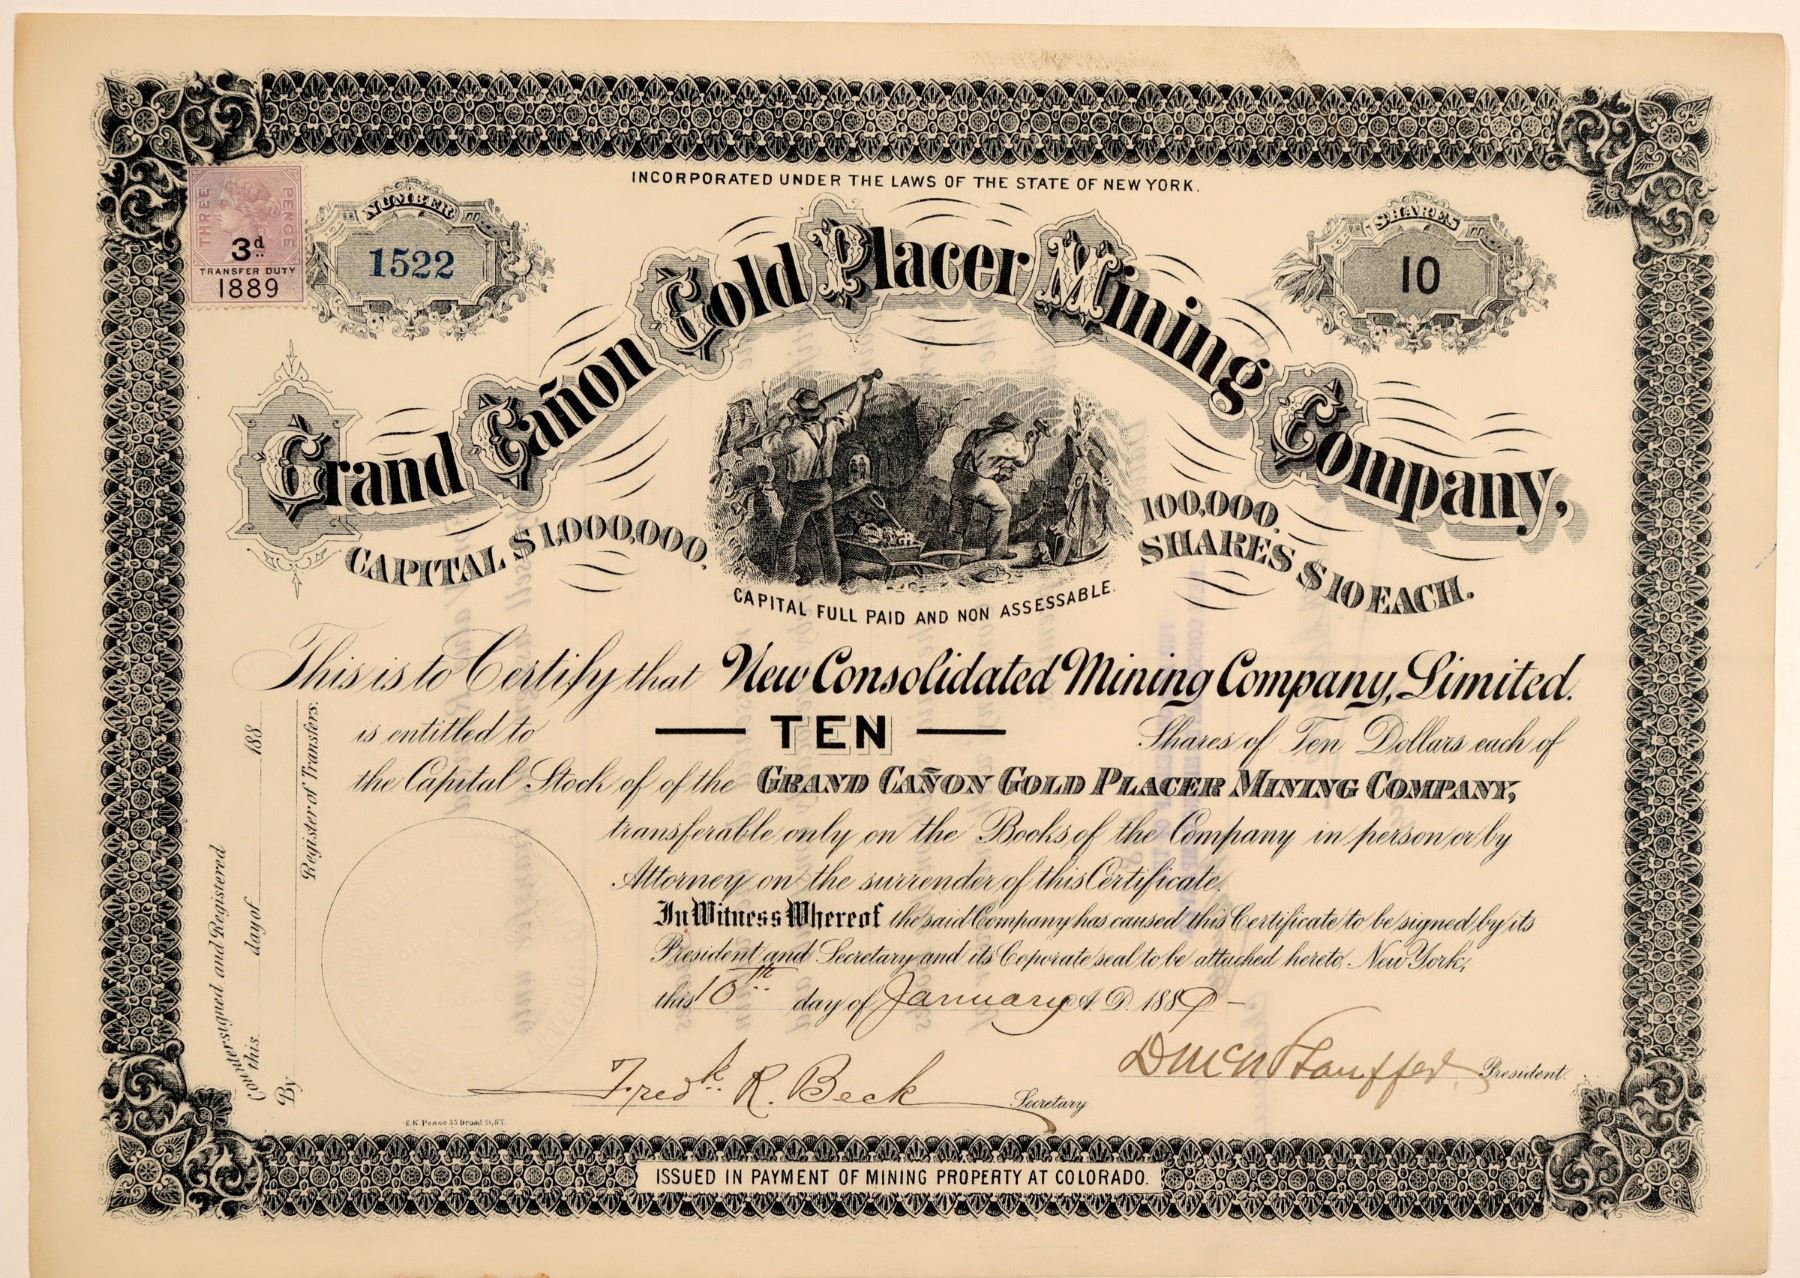 INCORPORATED UNDER THE LAWS OF THE STATE OF NEW YORK.
THREE PENCE
3d
TRANSFER DUTY
1889
NUMBER
1522
SHARES
10
Grand Cañon Gold Placer Mining Company,
CAPITAL $1,000,000.
100,000 SHARES $10 EACH.
CAPITAL FULL PAID AND NON ASSESSABLE.
This is to Certify that New Consolidated Mining Company, Limited.
is entitled to — TEN — Shares of Ten Dollars each of
the Capital Stock of of the GRAND CAÑON GOLD PLACER MINING COMPANY,
transferable only on the Books of the Company in person or by
Attorney on the surrender of this Certificate.
In Witness Whereof the said Company has caused this Certificate to be signed by its
President and Secretary and its Coporate seal to be attached hereto New York,
this 10th day of January A.D. 1889
Countersigned and Registered
on this day of 188
By Register of Transfers.
Fredk. R. Beck Secretary
D McN Stauffer President.
E K Pense 35 Broad St, N.Y.
ISSUED IN PAYMENT OF MINING PROPERTY AT COLORADO.